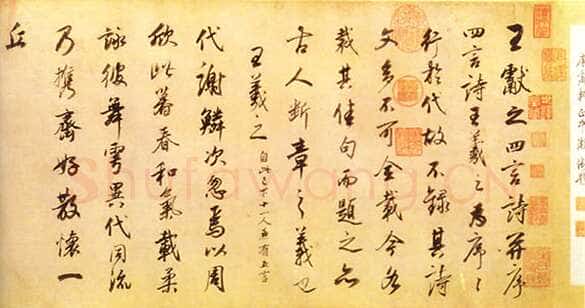 王獻之四言詩并序
四言詩王羲之為序〻
行於代故不錄其詩
文多不可全載今各
裁其佳句而題之亦
古人斷章之義也
王羲之 自此已下十一人有五言
代謝鱗次忽焉以周
欣此暮春和氣載柔
詠彼舞雩異代同流
乃攜齊好散懷一
丘
Shufawang.CN